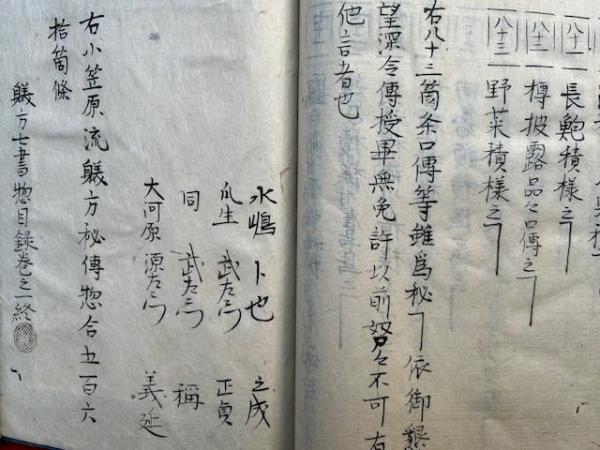 八十一 長鮑積様之ヿ
八十二 樽披露品々口傳之ヿ
八十三 野菜積様之ヿ
右八十三箇条口傳等雖爲秘ヿ依御懇
望深令傳授畢無免許以前努々不可有
他言者也
水嶋 卜也 之成
瓜生 武左衛門 正貞
同 武左衛門 稱
大河原 源左衛門 義延
右小笠原流躾方秘傳惣合五百六
拾箇條
躾方七書惣目錄卷之一終